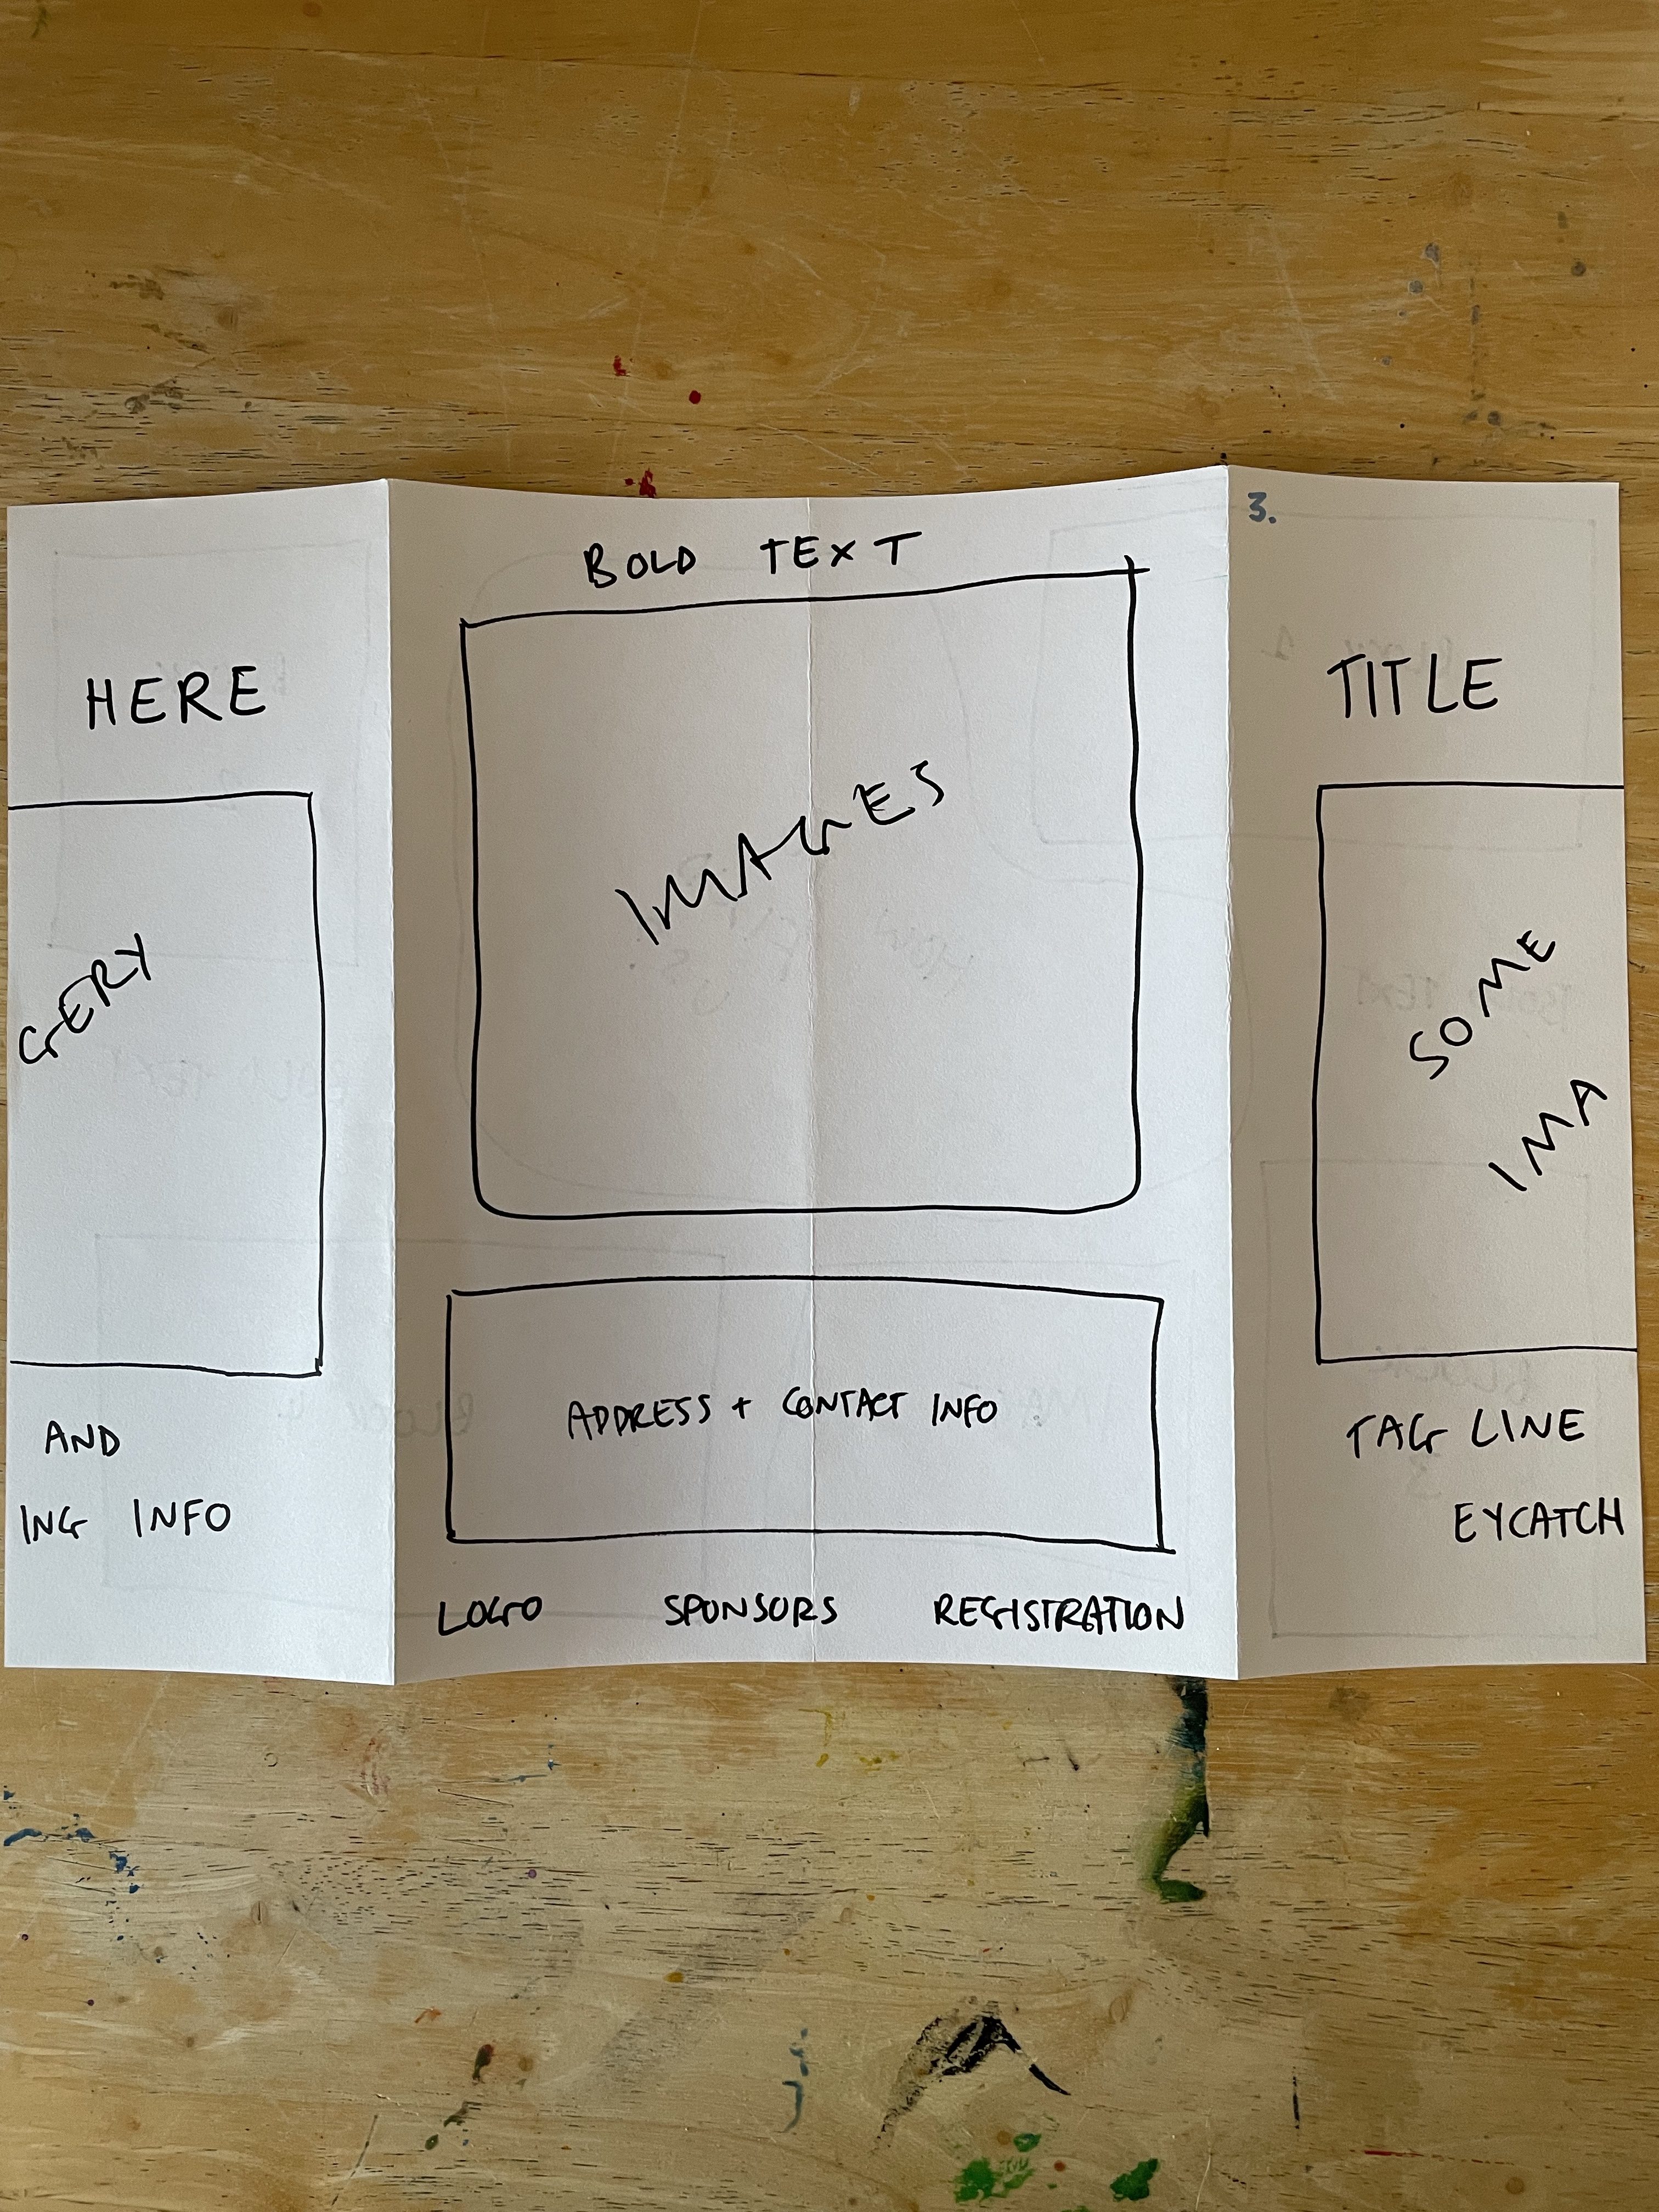 3.
HERE
GERY
AND
ING INFO
BOLD TEXT
IMAGES
ADDRESS + CONTACT INFO
LOGO SPONSORS REGISTRATION
TITLE
SOME
IMA
TAG LINE
EYCATCH